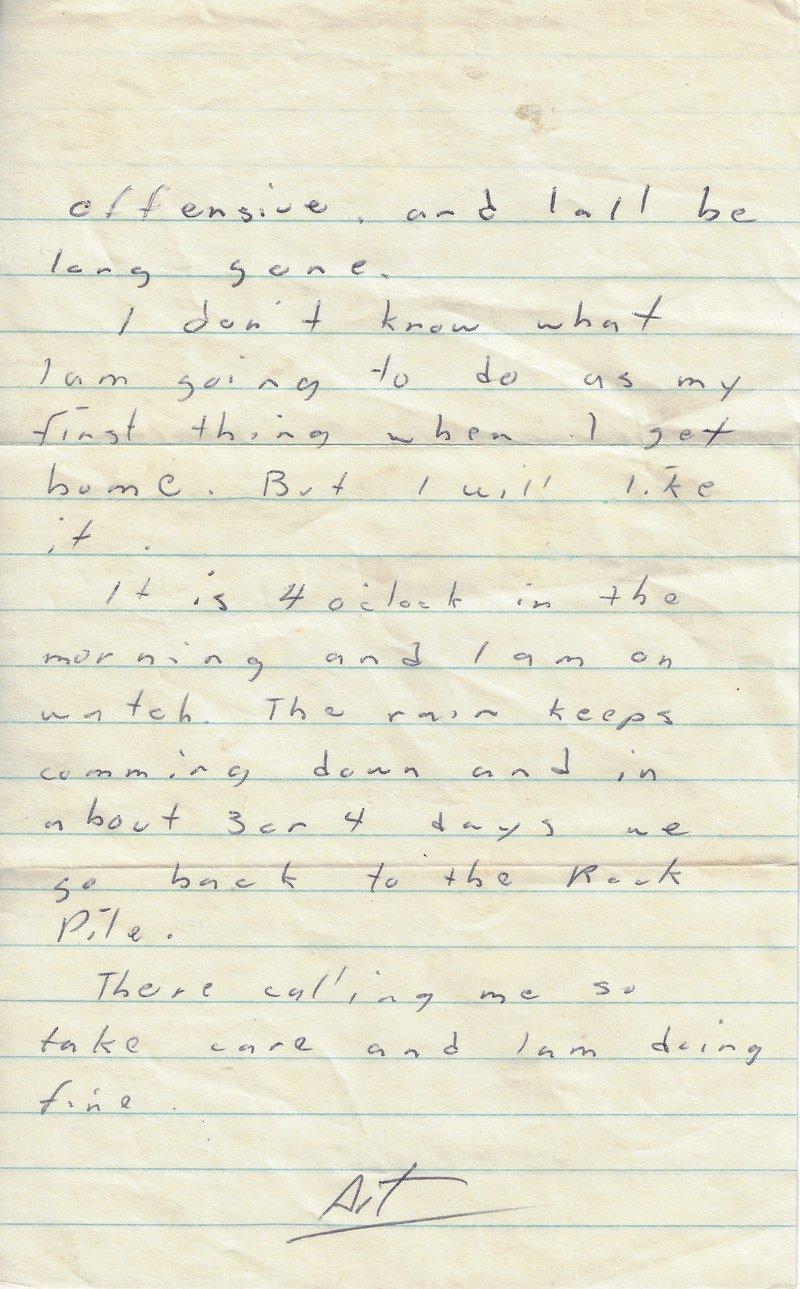 offensive. and Iall be
long gone.
I don't know what
I am going to do as my
first thing when I get
home. But I will like
it.
It is 4 oclock in the
morning and I am on
watch. The rain keeps
comming down and in
about 3 or 4 days we
go back to the Rock
Pile.
There calling me so
take care and I am doing
fine.
Art